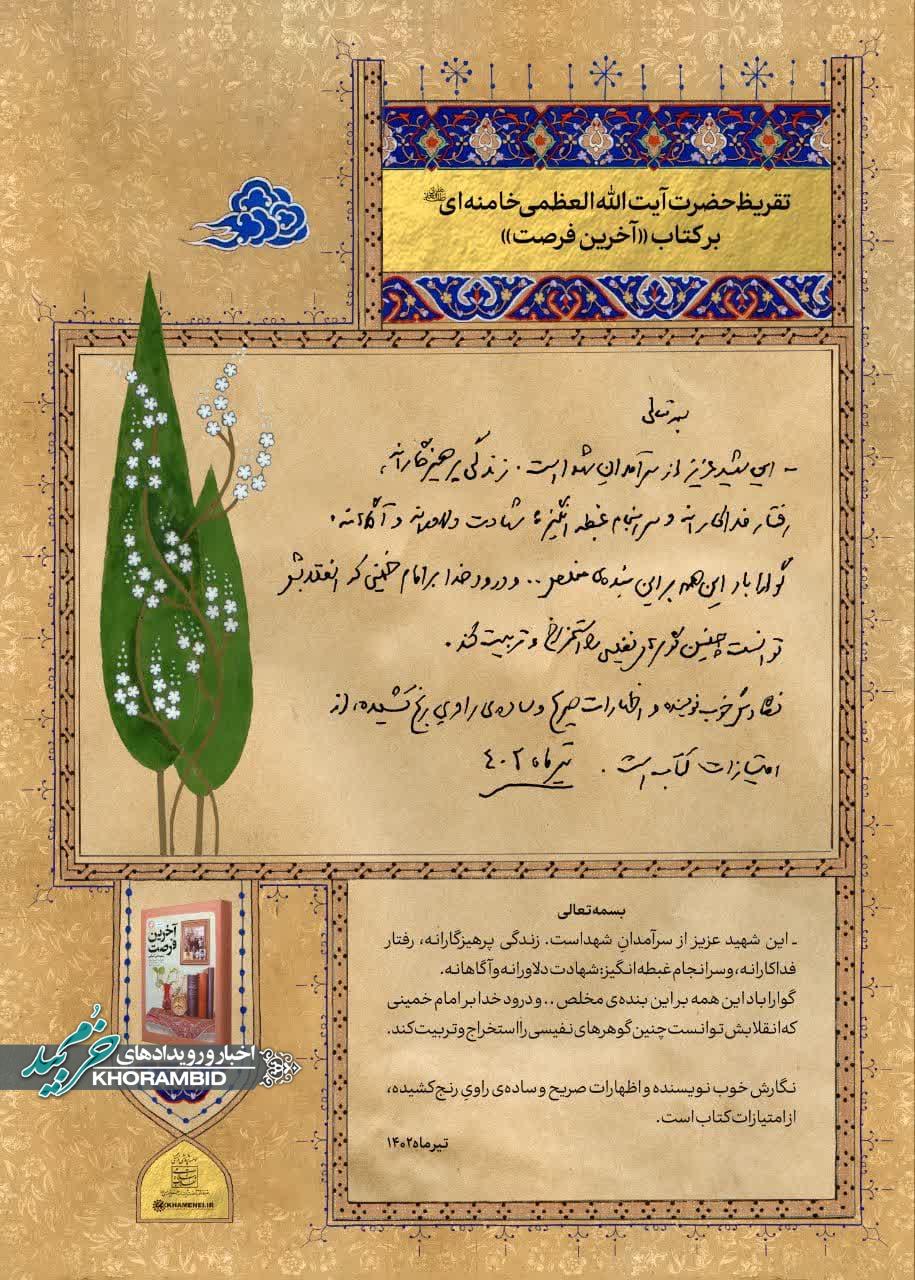 تقریظ حضرت آیت الله العظمی خامنه ای
بر کتاب ((آخرین فرصت))
بسمه تعالی
- این شهید عزیز از سرآمدان شهدا است. زندگی پرهیزگارانه،
رفتار فداکارانه و سرانجام غبطه انگیز؛ شهادت دلاورانه و آگاهانه.
گوارا باد این همه بر این بنده‌ی مخلص .. و درود خدا بر امام خمینی که انقلابش
توانست چنین گوهرهای نفیسی را استخراج و تربیت کند.
نگارش خوب نویسنده و اظهارات صریح و ساده‌ی راوی رنج کشیده، از
امتیازات کتاب است. تیرماه ۴۰۲
بسمه تعالی
ـ این شهید عزیز از سرآمدانِ شهداست. زندگی پرهیزگارانه، رفتار
فداکارانه، و سرانجام غبطه انگیز: شهادت دلاورانه و آگاهانه.
گوارا باد این همه بر این بنده‌ی مخلص .. و درود خدا بر امام خمینی
که انقلابش توانست چنین گوهرهای نفیسی را استخراج و تربیت کند.
نگارش خوب نویسنده و اظهارات صریح و ساده‌ی راویِ رنج کشیده،
از امتیازات کتاب است.
تیرماه ۱۴۰۲
آخرین
فرصت
اخبار و رویدادهای
خرمبید
KHORAMBID
KHAMENEI.IR